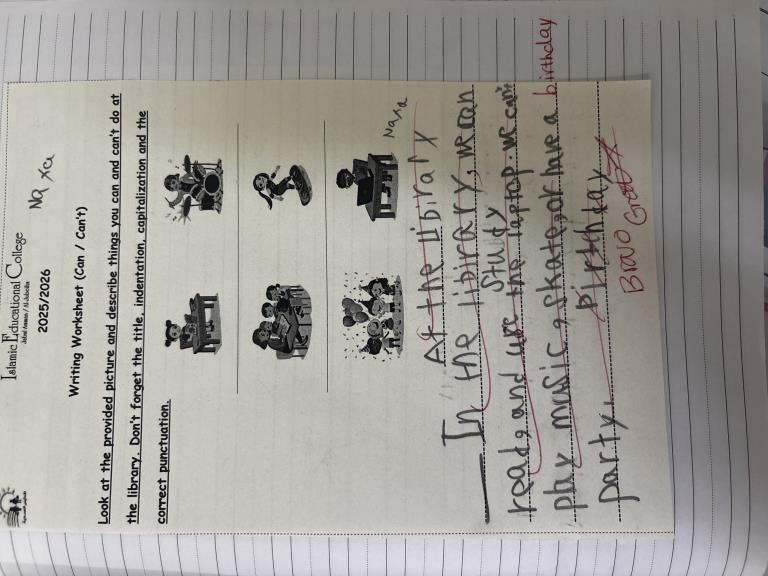 Islamic Educational College
Jabal Amman / Al-Jubeiha
2025/2026
Writing Worksheet (Can / Can't)
Look at the provided picture and describe things you can and can't do at
the library. Don't forget the title, indentation, capitalization and the
correct punctuation.
At the Libirary
In the library, we can
study
read, and use the laptop. we can't
play music, skate, or have a birthday
party. Pirthday
Bravo
Great